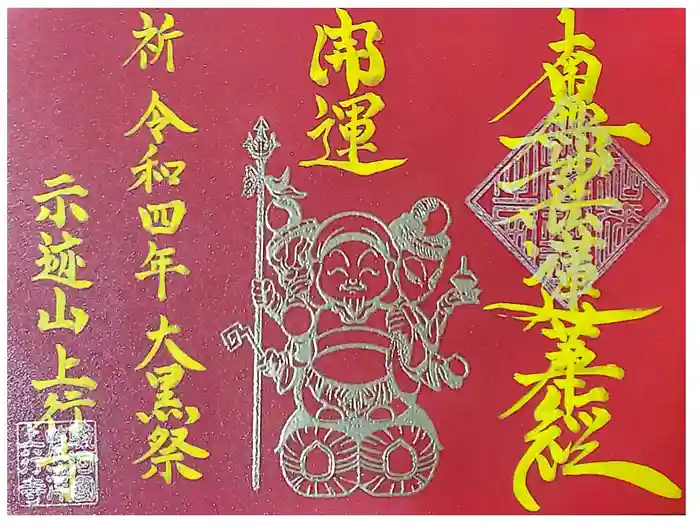 南無妙法蓮華経
開運
祈
令和四年 大黒祭
示迹山上行寺